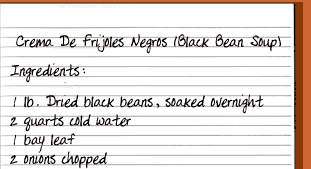 Crema De Frijoles Negros (Black Bean Soup)
Ingredients:
1 lb. Dried black beans, soaked overnight
2 quarts cold water
1 bay leaf
2 onions chopped